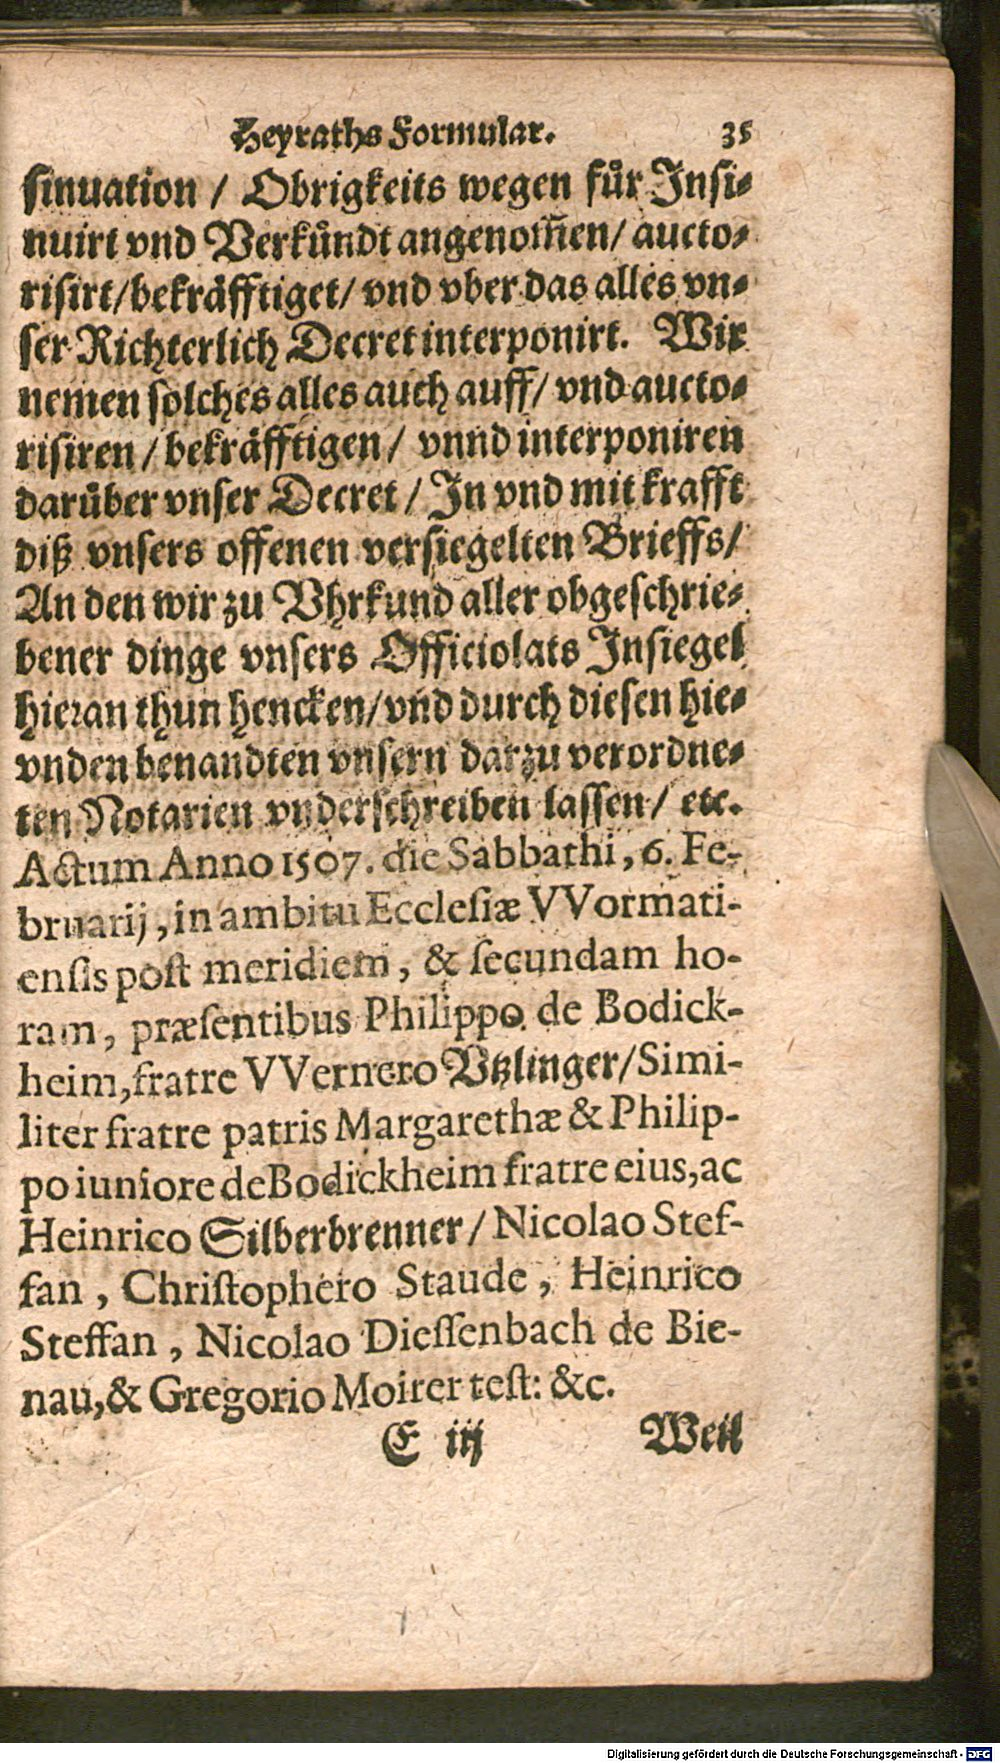 Heyraths Formular. 35
ſinuation / Obrigkeits wegen fuͤr Inſi-
nuirt vnd Verkuͤndt angenom̃en/ aucto-
riſirt/bekraͤfftiget/ vnd vber das alles vn-
ſer Richterlich Decret interponirt. Wir
nemen ſolches alles auch auff/ vnd aucto-
riſiren / bekraͤfftigen/ vnnd interponiren
daruͤber vnſer Decret / In vnd mit krafft
diß vnſers offenen verſiegelten Brieffs/
An den wir zu Vhrkund aller obgeſchrie-
bener dinge vnſers Officiolats Inſiegel
hieran thun hencken/vnd durch dieſen hie-
vnden benandten vnſern darzu verordne-
ten Notarien vnderſchreiben laſſen/ etc.
Actum Anno 1507. die Sabbathi, 6. Fe-
bruarij, in ambitu Eccleſiæ VVormati-
enſis poſt meridiem, & ſecundam ho-
ram, præſentibus Philippo de Bodick-
heim, fratre VVernero Vtzlinger/Simi-
liter fratre patris Margarethæ & Philip-
po iuniore de Bodickheim fratre eius, ac
Heinrico Silberbrenner/ Nicolao Stef-
fan, Chriſtophero Staude, Heinrico
Steffan, Nicolao Dieſſenbach de Bie-
nau, & Gregorio Moirer teſt: &c.
E iij Weil
Digitalisierung gefördert durch die Deutsche Forschungsgemeinschaft - DFG